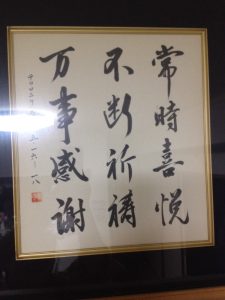 常時喜悦
不断祈祷
万事感谢
五 一六～一八